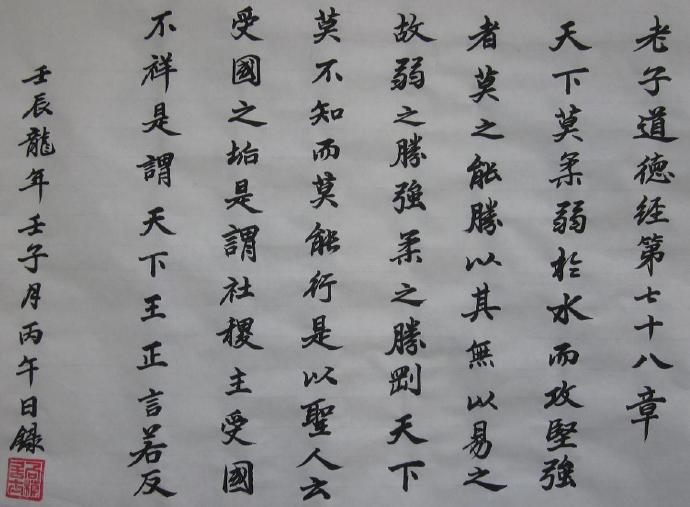 老子道德经第七十八章
天下莫柔弱於水而攻堅強
者莫之能勝以其無以易之
故弱之勝強柔之勝剛天下
莫不知而莫能行是以聖人云
受國之垢是謂社稷主受國
不祥是謂天下王正言若反
壬辰龍年壬子月丙午日錄